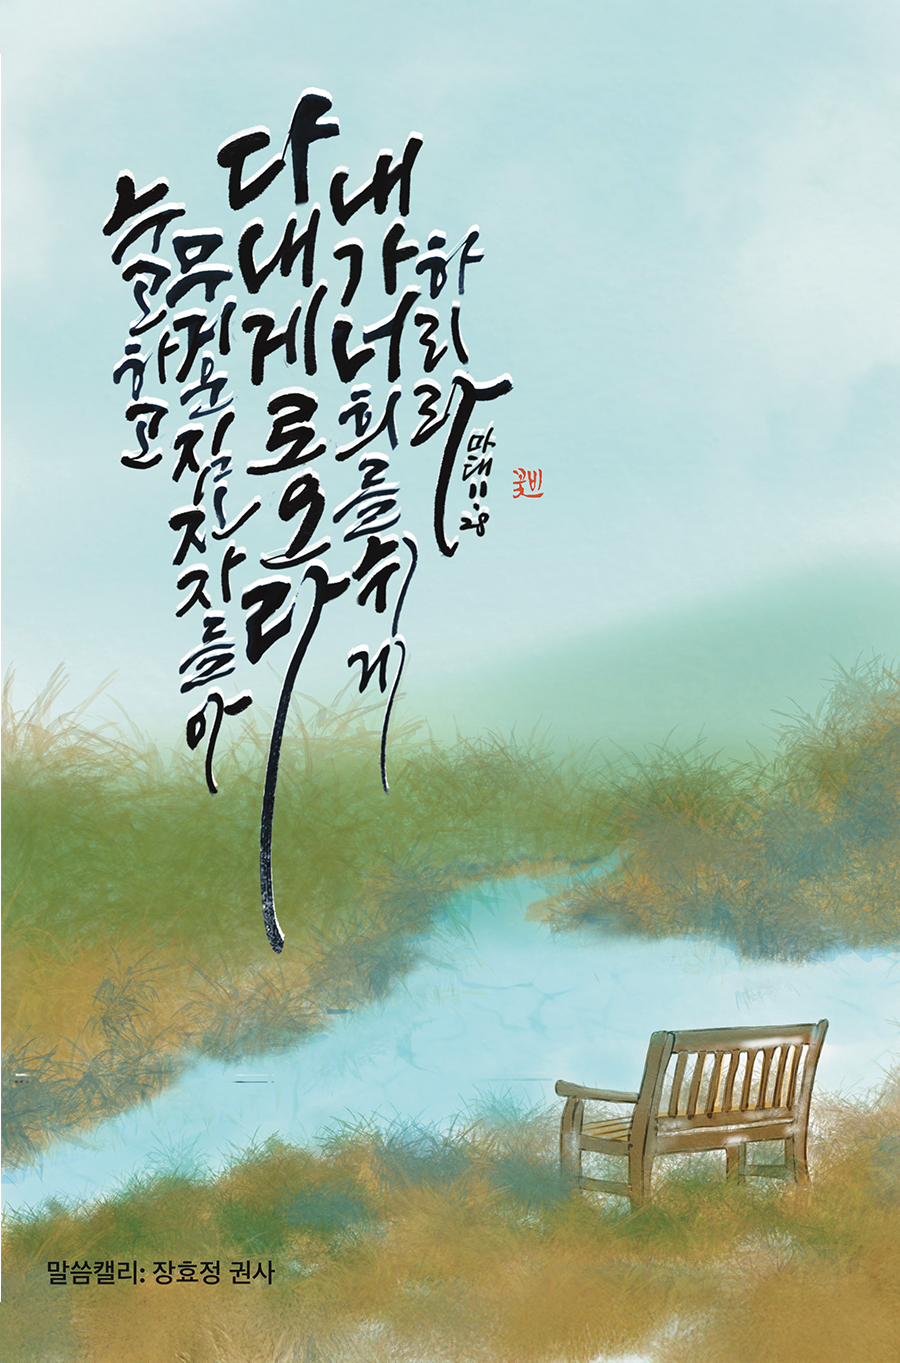 수고하고
무거운 짐진 자들아
다 내게로 오라
내가 너희를 쉬게
하리라
마태 11:28
꽃비
말씀캘리: 장효정 권사